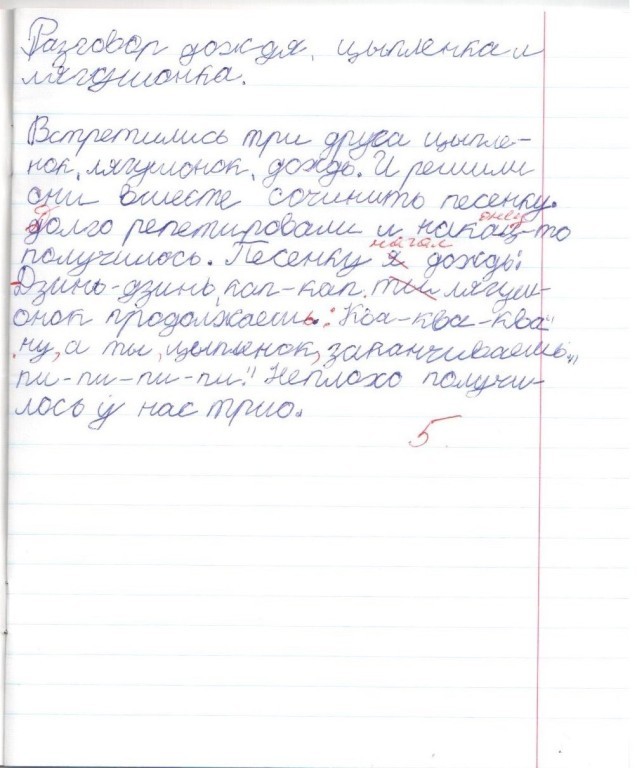 Разговор дождя, цыпленка и
лягушонка.
Встретились три друга цыпле-
нок, лягушонок, дождь. И решили
они вместе сочинить песенку.
Долго репетировали и наконец-то
получилось. Песенку я начал дождь:
Дзинь-дзинь, кап-кап. ты лягуш-
онок продолжаешь: "Ква-ква-ква"
ну, а ты, цыпленок, заканчиваешь „
пи-пи-пи-пи." Неплохо получи-
лось у нас трио.
5